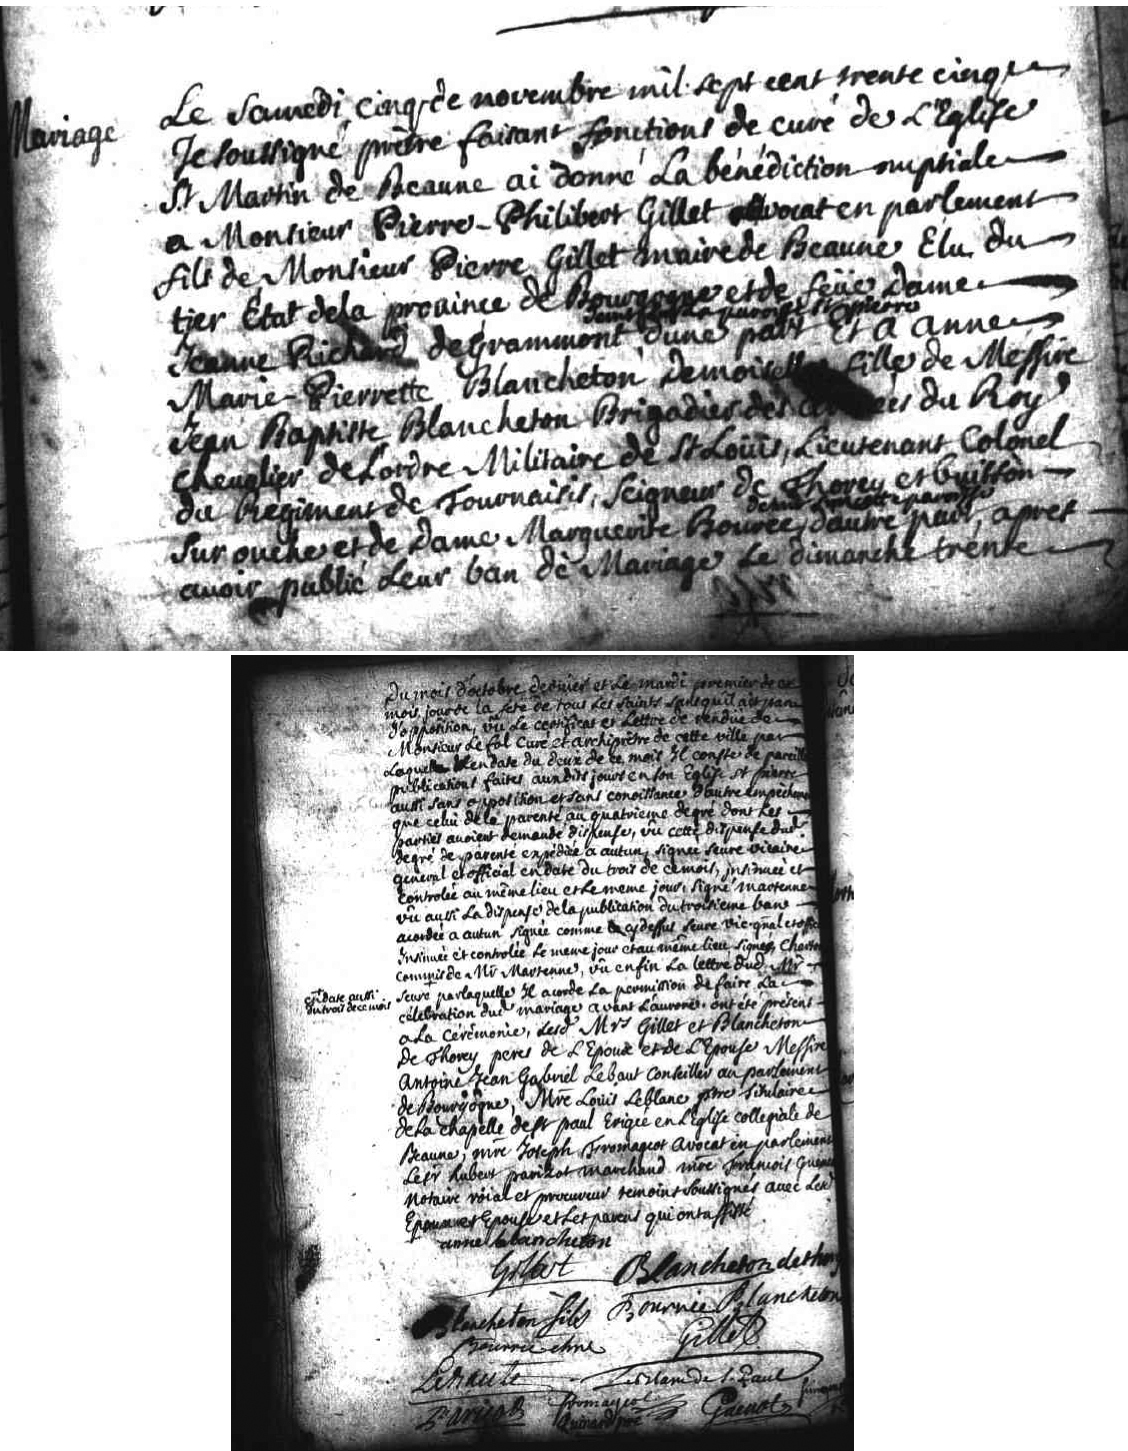 Mariage
Le Samedi cinq de novembre mil sept cent trente cinq
Je soussigné prètre faisant fonctions de curé de L'Eglise
St Martin de Beaune ai donné La bénédiction nuptiale
a Monsieur Pierre-Philibert Gillet avocat en parlement
fils de Monsieur Pierre Gillet maire de Beaune Elu du
tier Etat de la province de Bourgogne et de feüe Dame
Jeanne Richard de Grammont d'une part Et a Anne
la paroisse St pierre
Marie-Pierrette Blancheton Demoiselle fille de Messire
Jean Baptiste Blancheton Brigadier des armées du Roy
Chevalier de L'ordre Militaire de St Loüis, Lieutenant Colonel
du Regiment de Tournaisis, Seigneur de Thorey et Buisson
Sur ouche et de Dame Marguerite Bourée, d'autre part, apres
de cette paroisse
avoir publié Leur ban de Mariage Le dimanche trente
Du mois d'octobre dernier et Le mardi premier de ce
mois jour de la fete de tous Les Saints sans quil ait paru
d'opposition, vû Le certificat et Lettre de rendüe de
Monsieur Le fol Curé et archiprètre de cette ville par
Laquelle en date du deux de ce mois Il conste de pareilles
publications faites auxdits jours en son Eglise St pierre
aussi sans opposition et sans conoissance d'autre empèchement
que celui de la parenté au quatrieme degré dont Les
parties auoient demandé dispense, vû cette dispense dud.
degré de parenté expédiée a autun, signée Seure vicaire
general et official en date du trois de ce mois, insinuée et
Controlée au même lieu et Le meme jour, signé martenne
vû aussi La dispense de la publication du troisieme ban
acordée a autun signée comme cy dessus Seure vic. gnal et offic
Insinuée et controlée Le meme jour et au même lieu signé
Commis de Mr Martenne, vû enfin La lettre dud. Mr
Seure par laquelle Il acorde La permission de faire La
en date aussi
du trois de ce mois
célebration dud mariage avant L'aurore. ont été présent
a La Cérémonie, Lesd. Mrs Gillet et Blancheton
De Thorey peres de L'Epoux et de L'Epouse Messire
Antoine Jean Gabriel Lebaut Conseiller au parlement
de Bourgogne, Mre Loüis Leblanc ptre titulaire
de La chapelle de St paul Erigée en L'Eglise collegiale de
Beaune, mre Joseph Fromageot Avocat en parlement
Le Sr hubert parizot marchand mre francois
Notaire roial et procureur temoins soussignés avec Les
Epoux et Epouse et Les parens qui ont assisté
anne blancheton
Gillet Blancheton de thorey
Blancheton fils Bourrée Blancheton
Gillet
Lebault Leblanc de St. Paul
Parizot Fromageot Guenot